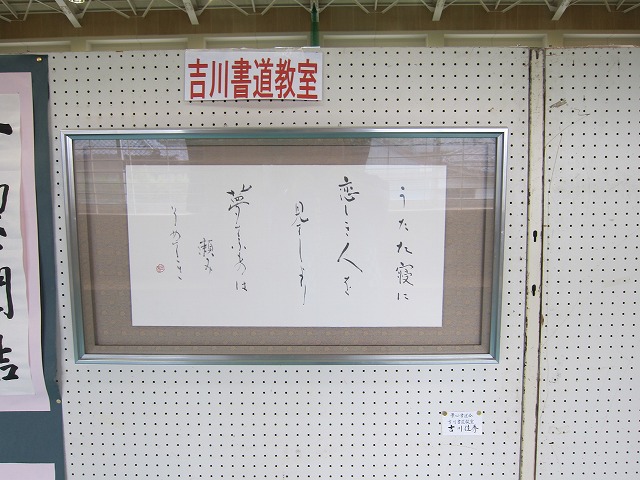 吉川書道教室
うたた寝に
恋しき人を
見てしより
夢てふものは
頼み
そめてき
吉川書道教室